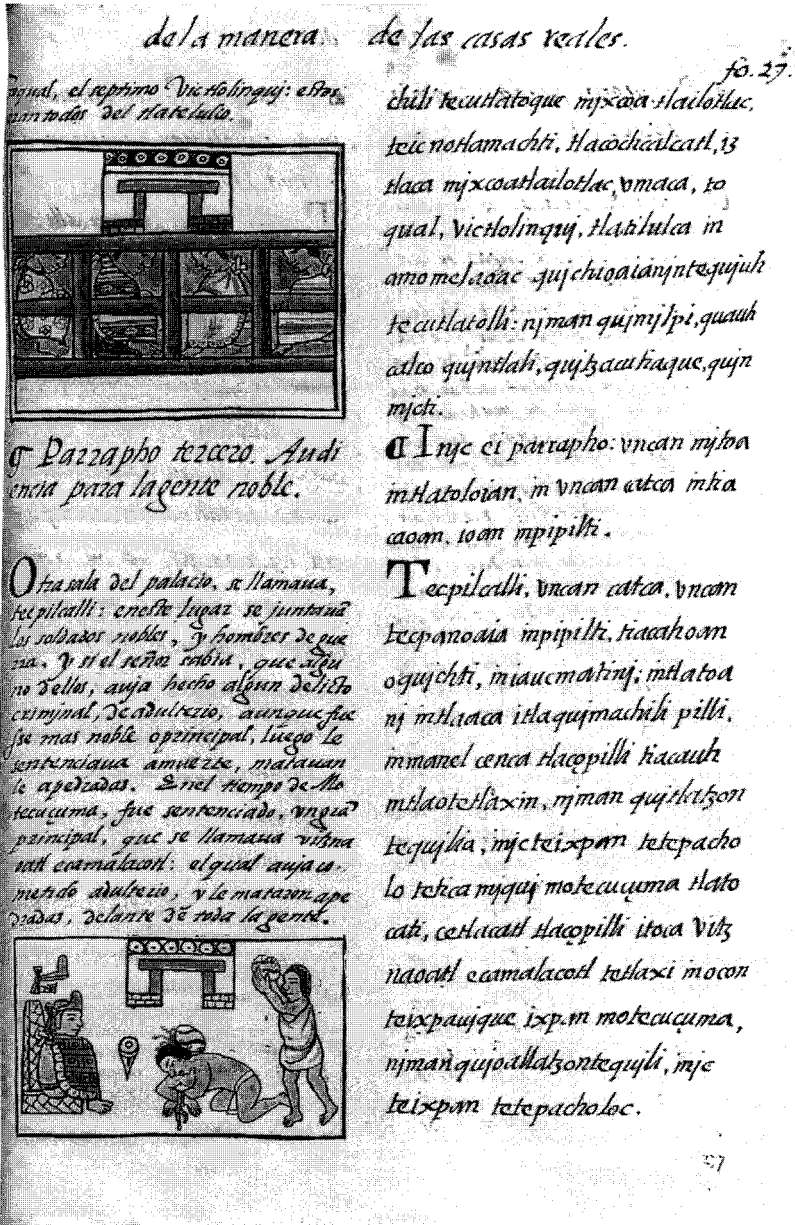 de la manera de las casas reales.
fo. 27.
qual, el septimo Victlolinquj: estos
todos del tlatelulco.
¶ Parrapho tercero. Audi
encia para la gente noble.
Otra sala del palacio, se llamaua,
tecpilcalli: en este lugar se juntauã
los soldados nobles, y hombres de gue
rra. Y si el señor sabia, que algu
no dellos, auja hecho algun delicto
criminal, de adulterio, aunque fue
sse mas noble o principal, luego le
sentenciaua a muerte, matauan
le a pedradas. En el tiempo de Mo
tecuçuma, fue sentenciado, vn grã
principal, que se llamaua vitzna
oatl ecamalacotl: el qual auja co
metido adulterio, y le mataron a pe
dradas, delante de toda la gente.
chili tecutlatoque mjxcoa tlailotlac,
teicnotlamachti, tlacochcalcatl, iz
tlaca mjxcoatlailotlac, vmaca, to
qual, victlolinquj, tlatilulca in
amo melaoac qujchioaia inintequjuh
tecutlatolli: njman qujmjlpi, quauh
calco qujntlali, qujtzacutiaque, qujn
mjcti.
¶ Injc ei parrapho: vncan mjtoa
in tlatoloian, in vncan catca in tia
caoan, ioan in pipilti.
Tecpilcalli, vncan catca, vncan
tecpanoaia in pipilti, tiacahoan
oqujchti, in iaucmatinj; intla toa
nj intla aca itla qujmachili pilli,
in manel cenca tlaçopilli tiacauh
intla otetlaxin, njman qujtlatzon
tequjlia, injc teixpan tetepacho
lo tetica mjquj motecuçuma tlato
cati, ce tlacatl tlaçopilli itoca Vitz
naoatl ecamalacotl tetlaxi in ocon
teixpaujque ixpan motecuçuma,
njman qujoallatzontequjli, injc
teixpan tetepacholoc.
27